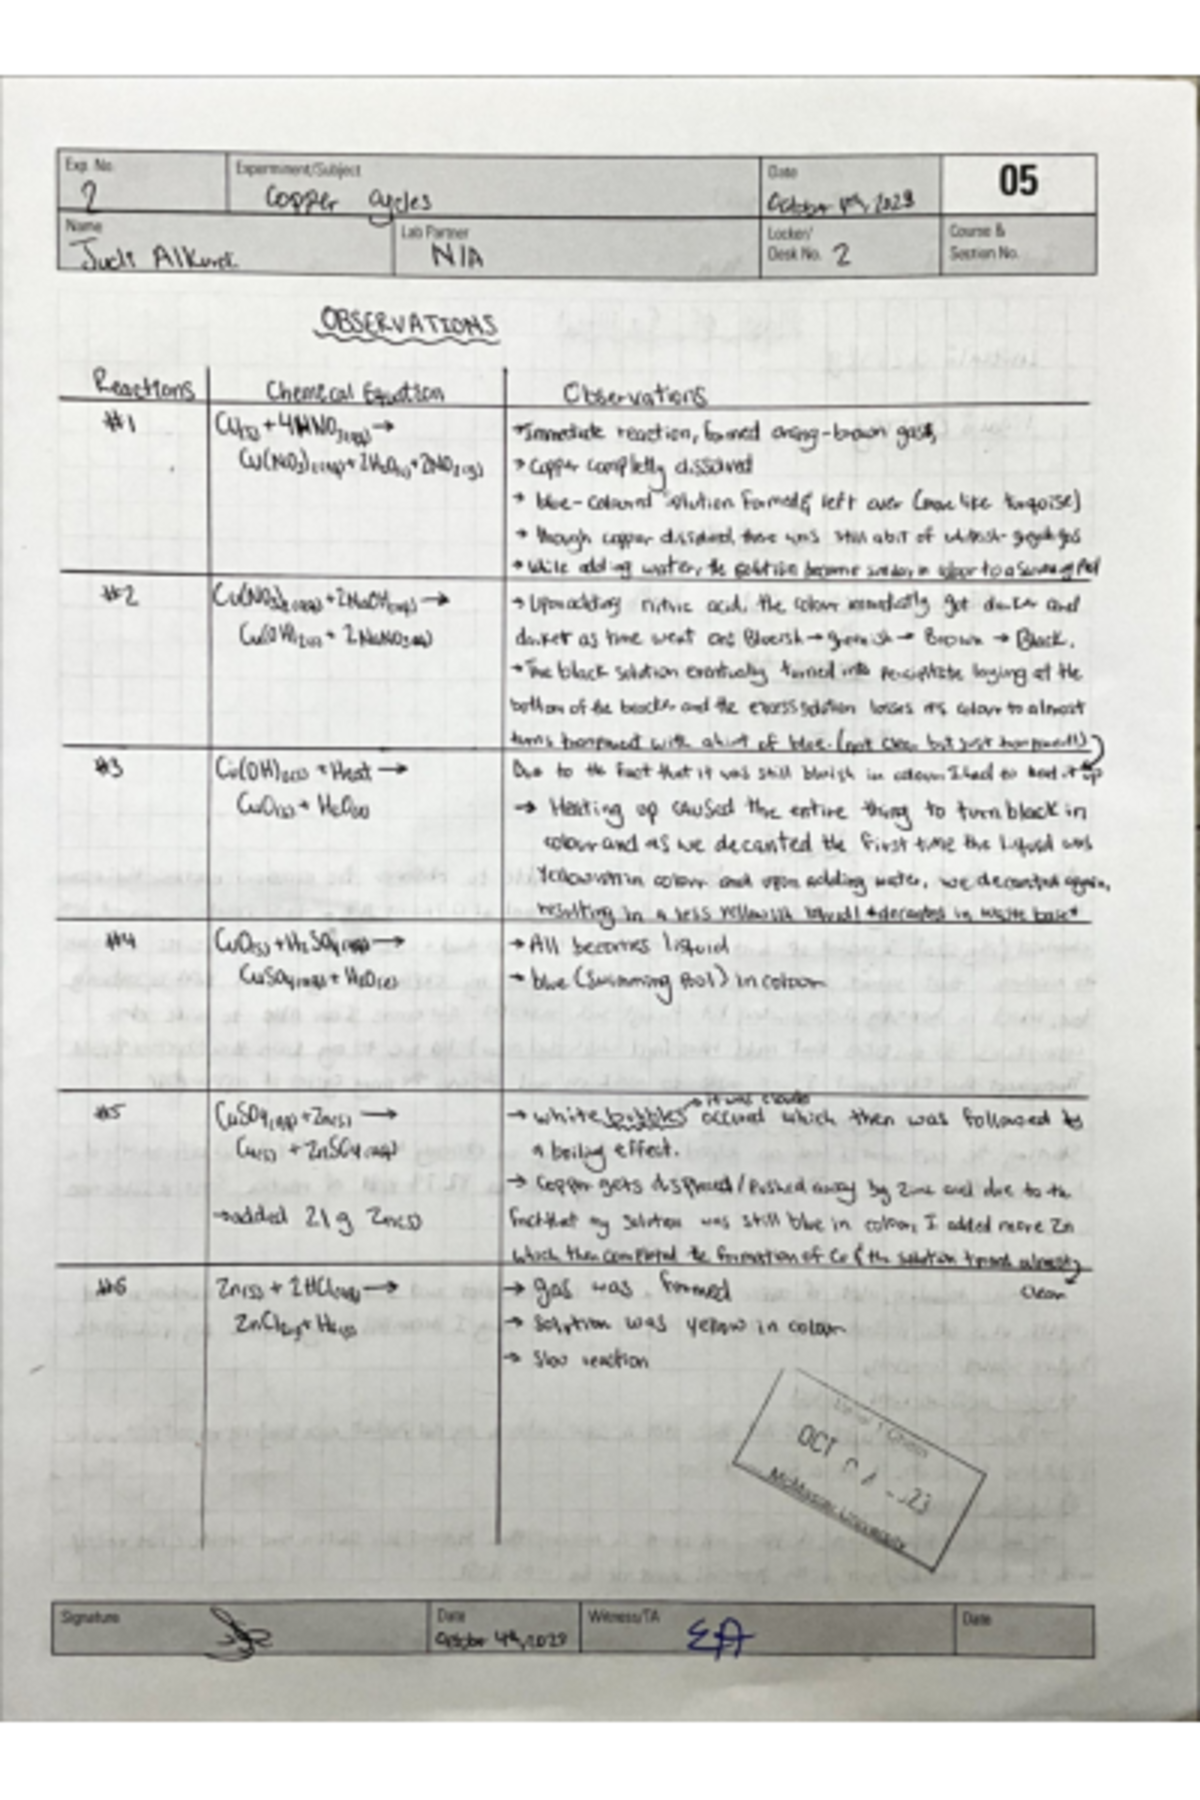 Exp. No.
2
Experiment/Subject
Copper Cycles
Date
October 4th, 2023
05
Name
Judi Alkurdi
Lab Partner
N/A
Locker/
Desk No. 2
Course &
Section No.
OBSERVATIONS
Reactions
Chemical Equation
Observations
#1
Cu(s) + 4HNO3(aq) →
Cu(NO3)2(aq) + 2H2O(l) + 2NO2(g)
→ Immediate reaction, formed orang-brown gas
→ Copper completly dissolved
→ blue-coloured solution formed & left over (more like turquoise)
→ though copper dissolved, there was still a bit of whitish- gas
→ While adding water, the solution became similar in colour to a swimming Pool
#2
Cu(NO3)2(aq) + 2NaOH(aq) →
Cu(OH)2(s) + 2NaNO3(aq)
→ Upon adding nitric acid, the colour immediatly got darker and
darker as time went on: Blueish → greenish → Brown → Black.
→ The black solution eventually turned into percipitate laying at the
bottom of the beacker and the excess solution losses its colour to almost
turns transparent with a hint of blue. (not clear but just transparent)
#3
Cu(OH)2(s) + Heat →
CuO(s) + H2O(l)
Due to the fact that it was still bluish in colour I had to heat it up
→ Heating up caused the entire thing to turn black in
colour and as we decanted the first time the liquid was
Yellowish in colour and upon adding water, we decanted again,
resulting in a less yellowish liquid! *decanted in waste base*
#4
CuO(s) + H2SO4(aq) →
CuSO4(aq) + H2O(l)
→ All becomes liquid
→ blue (Swimming Pool) in colour
#5
CuSO4(aq) + Zn(s) →
Cu(s) + ZnSO4(aq)
→ added 21 g Zn(s)
→ it was cloudy
→ white bubbles occured which then was followed by
a boiling effect.
→ Copper gets displaced/pushed away by Zinc and due to the
fact that my solution was still blue in colour, I added more Zn
which then completed the formation of Cu & the solution turned almost
clear
#6
Zn(s) + 2HCl(aq) →
ZnCl2 + H2(g)
→ gas was formed
→ Solution was yellow in colour
→ Slow reaction
Level 1 Chem
OCT 04 2023
McMaster University
Signature
Date
October 4th, 2023
Witness/TA
EA
Date